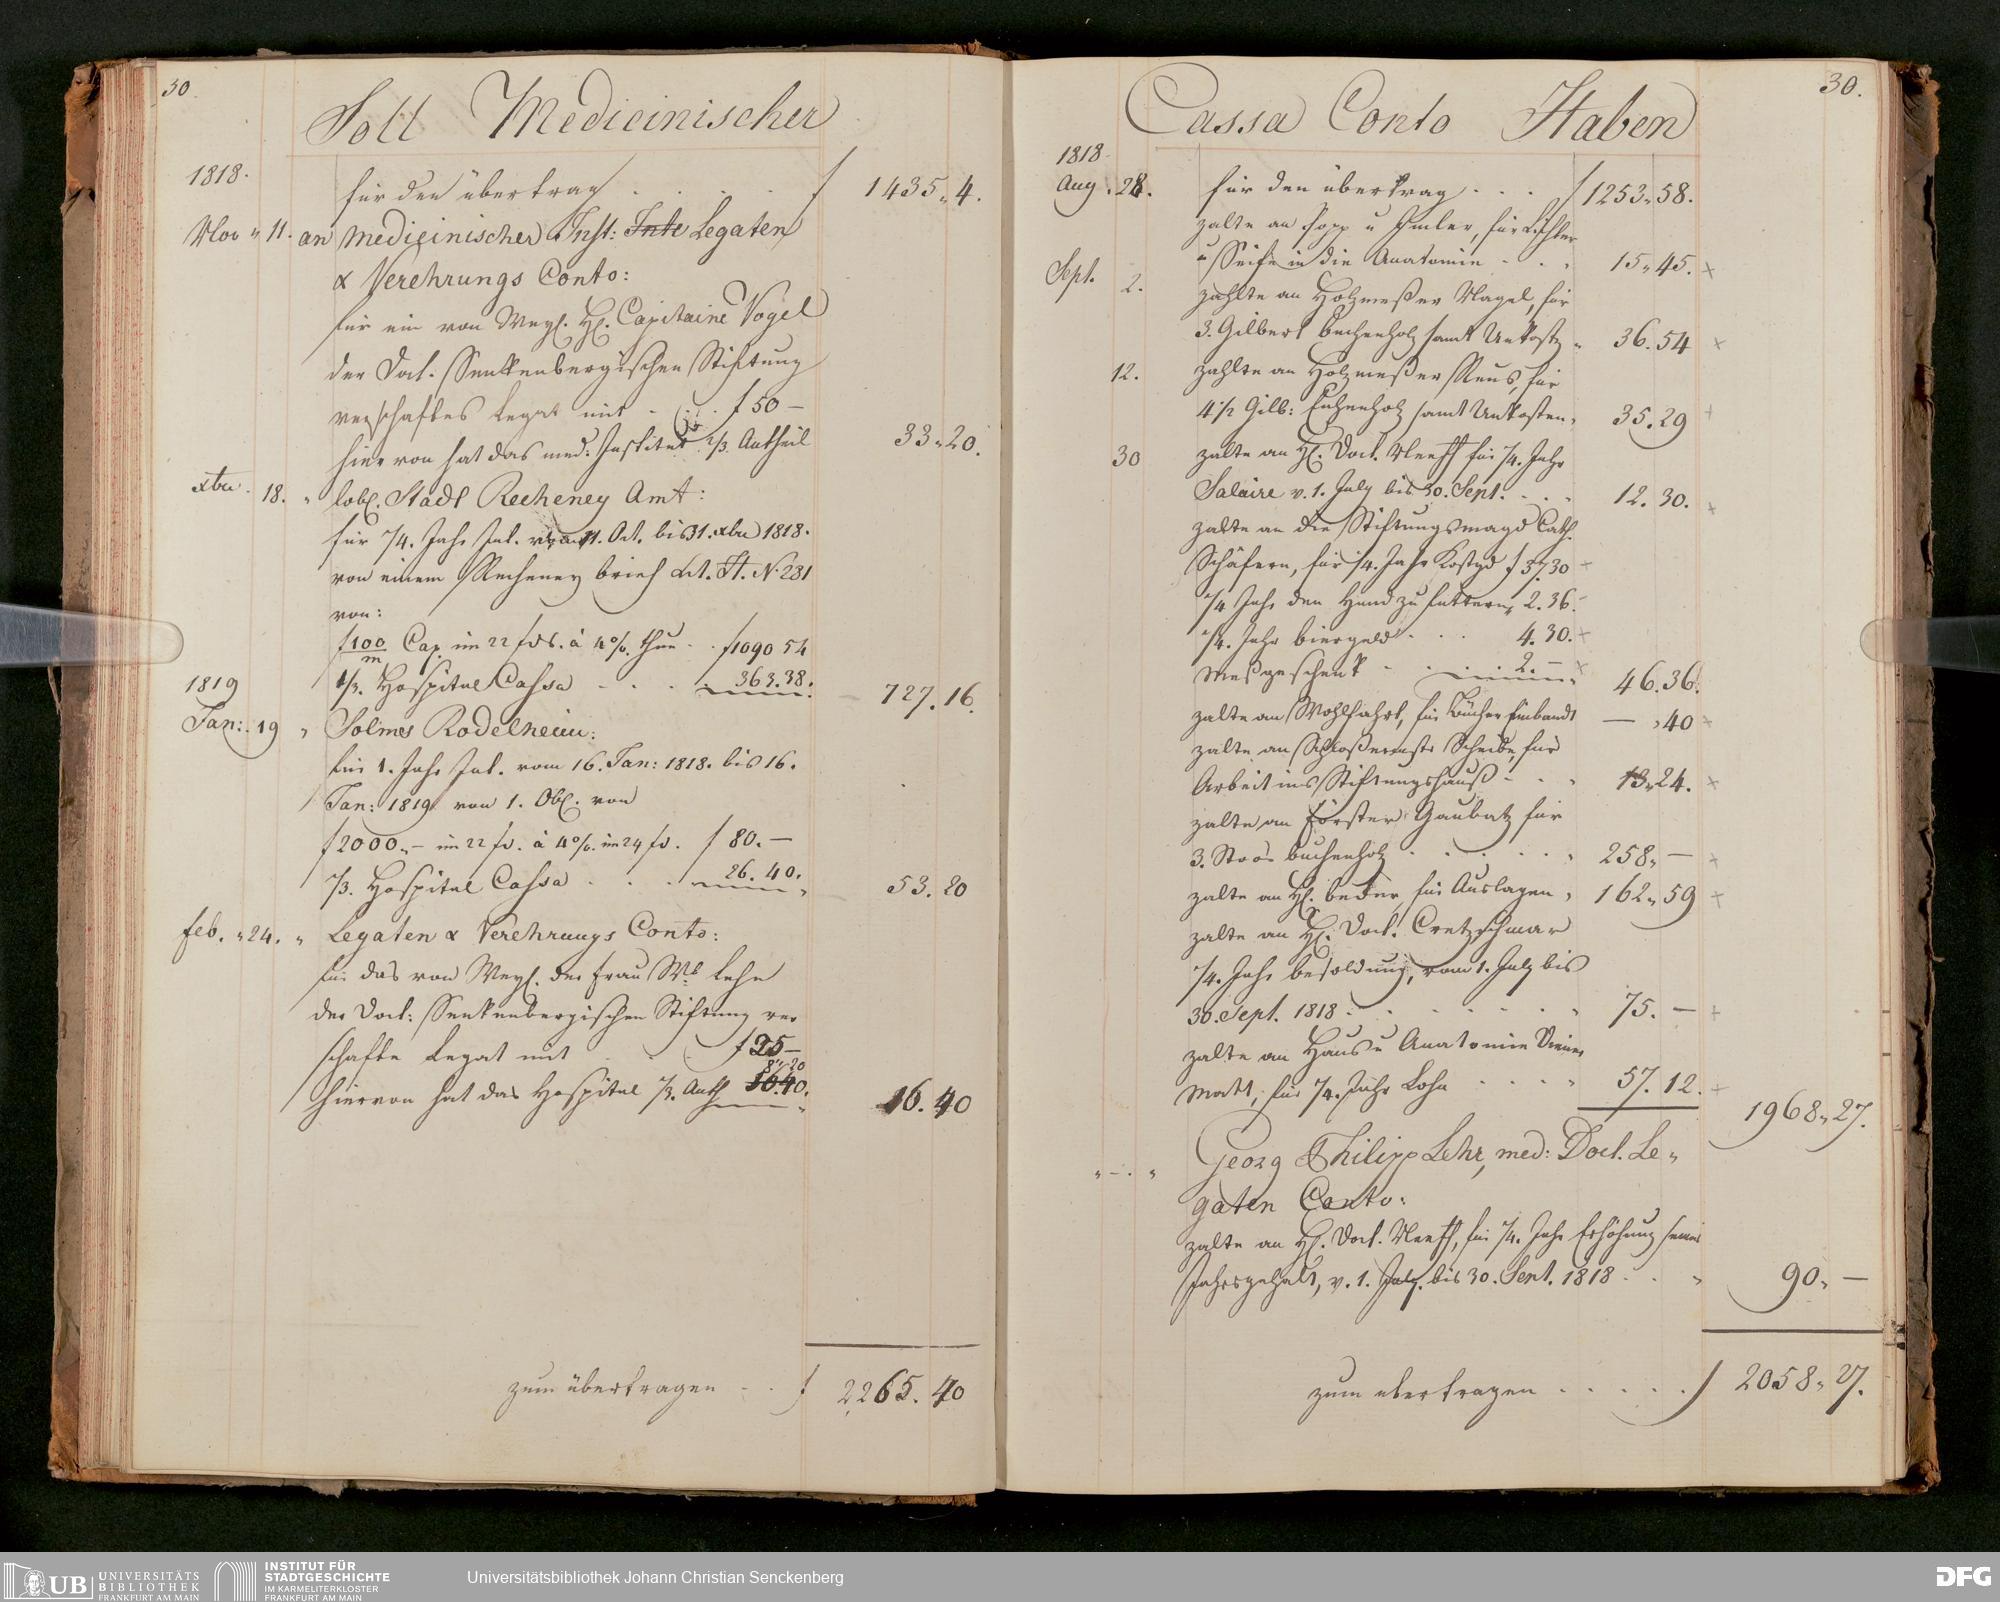 30
Soll Medicinischer
1818.
für den übertrag . . . . f 1435 „ 4.
Nov „ 11. an medicinischer Inst: Inte Legaten
& Verehrungs Conto:
für ein von Weyl. H. Capitaine Vogel
der Doct. Senkenbergischen Stiftung
verschaftes Legat mit . . . f 50 —
hier von hat das med. Institut 2/3. Antheil 33 „ 20.
xbre. 18. „ lobl. Stadt Recheney Amt:
für 1/4. Jahr Int. vom 1. Oct. bis 31. xbre 1818.
von einem Recheney brief Lit. H. N. 231
von:
f 100/m Cap. im 22 f. à 4 %. thun . . f 1090 54
1/3. Hospital Cassa . . . 363.38. 727. 16.
1819
Jan: 19 „ Solmes Rodelheim:
für 1. Jahr Int. vom 16. Jan: 1818. bis 16.
Jan: 1819 von 1. Obl. von
f 2000 „ — im 22 f. à 4 %. im 24 f. f 80. —
1/3. Hospital Cassa . . . 26. 40. 53. 20
feb. „ 24. „ Legaten & Verehrungs Conto:
für das von Weyl. der Frau Wb. Lehr
der Doct: Senkenbergischen Stiftung ver
schafte Legat mit . . . f 25 —
8 „ 20
hiervon hat das Hospital 1/3. Anth 16.40. 16. 40
zum übertragen . . . f 2265. 40
30.
Cassa Conto Haben
1818
Aug. 28. für den übertrag . . . f 1253 „ 58.
zalte an Popp u , für Lichter
u Seife in die Anatomie . . . 15 „ 45.
Sept. 2. zahlte an Holzmeßer Nagel, für
3. Gilbert buchenholz samt Unkosten „ 36. 54
12. zahlte an Holzmeßer Reus, für
4 1/2 Gilb: Eichenholz samt Unkosten „ 35. 29
30 zalte an H. Doct. Neeff für 1/4. Jahr
Salaire v. 1. July bis 30. Sept. . . . 12. 30.
zalte an die Stiftungsmagd Cath.
Schäfern, für 1/4. Jahr Kostgd f 37.30
1/4 Jahr den Hund zu futtern „ 2. 36.
1/4. Jahr biergeld . . . 4. 30.
Meßgeschenk . . . . 2. — 46. 36.
zalte an Wohlfahrt, für Bücher Einband — „ 40
zalte an Schloßermstr Scheibe, für
Arbeit ins Stiftungshauß . . . 13 „ 24.
zalte an Förster Gaubatz für
3. buchenholz . . . . . 258 „ —
zalte an H. beder für Auslagen „ 162 „ 59
zalte an H. Doct. Cretzschmar
1/4. Jahr besoldung, vom 1. July bis
30. Sept. 1818 . . . . . . 75. —
zalte an Haus u Anatomie Diener
Matt, für 1/4. Jahr Lohn . . . . 57. 12. 1968 „ 27.
„ — . „ Georg Philipp Lehr, med: Doct. Le „
gaten Conto:
zalte an H. Doct. Neeff, für 1/4. Jahr Erhöhung seines
Jahrsgehalt, v. 1. July. bis 30. Sept. 1818 . . „ 90 „ —
zum übertragen . . . . . f 2058 „ 27.
UB UNIVERSITÄTS
BIBLIOTHEK
FRANKFURT AM MAIN
INSTITUT FÜR
STADTGESCHICHTE
IM KARMELITERKLOSTER
FRANKFURT AM MAIN
Universitätsbibliothek Johann Christian Senckenberg
DFG